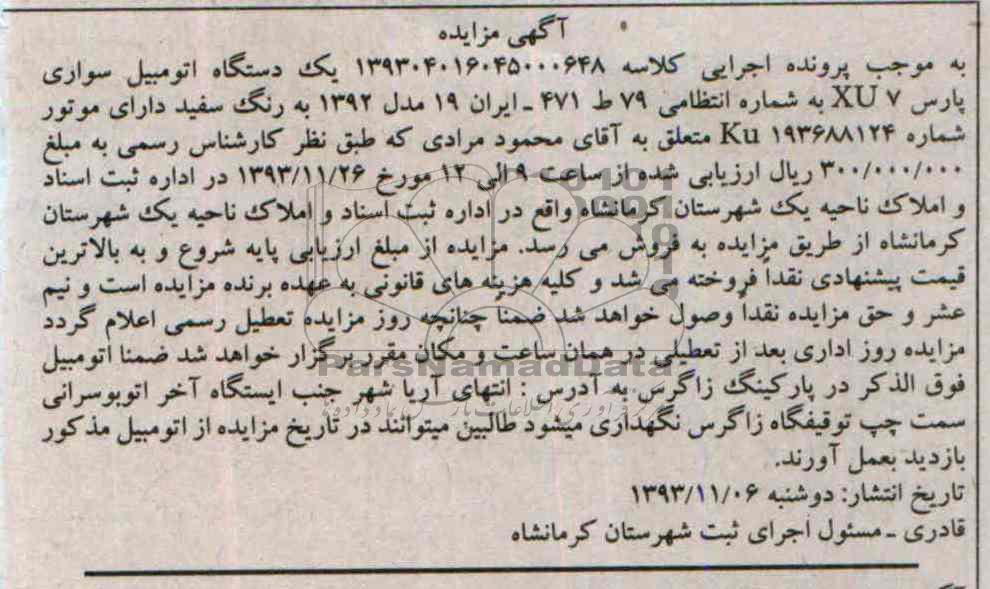 آگهی مزایده
به موجب پرونده اجرایی کلاسه ۱۳۹۳۰۴۰۱۶۰۴۵۰۰۰۶۴۸ یک دستگاه اتومبیل سواری
پارس XU ۷ به شماره انتظامی ۷۹ ط ۴۷۱ ـ ایران ۱۹ مدل ۱۳۹۲ به رنگ سفید دارای موتور
شماره Ku ۱۹۳۶۸۸۱۲۴ متعلق به آقای محمود مرادی که طبق نظر کارشناس رسمی به مبلغ
۳۰۰/۰۰۰/۰۰۰ ریال ارزیابی شده از ساعت ۹ الی ۱۲ مورخ ۱۳۹۳/۱۱/۲۶ در اداره ثبت اسناد
و املاک ناحیه یک شهرستان کرمانشاه واقع در اداره ثبت اسناد و املاک ناحیه یک شهرستان
کرمانشاه از طریق مزایده به فروش می رسد. مزایده از مبلغ ارزیابی پایه شروع و به بالاترین
قیمت پیشنهادی نقداً فروخته می شد و کلیه هزینه های قانونی به عهده برنده مزایده است و نیم
عشر و حق مزایده نقداً وصول خواهد شد ضمناً چنانچه روز مزایده تعطیل رسمی اعلام گردد
مزایده روز اداری بعد از تعطیلی در همان ساعت و مکان مقرر برگزار خواهد شد ضمنا اتومبیل
فوق الذکر در پارکینگ زاگرس به آدرس : انتهای آریا شهر جنب ایستگاه آخر اتوبوسرانی
سمت چپ توقیفگاه زاگرس نگهداری میشود طالبین میتوانند در تاریخ مزایده از اتومبیل مذکور
بازدید بعمل آورند.
تاریخ انتشار: دوشنبه ۱۳۹۳/۱۱/۰۶
قادری ـ مسئول اجرای ثبت شهرستان کرمانشاه
ParsNamadData